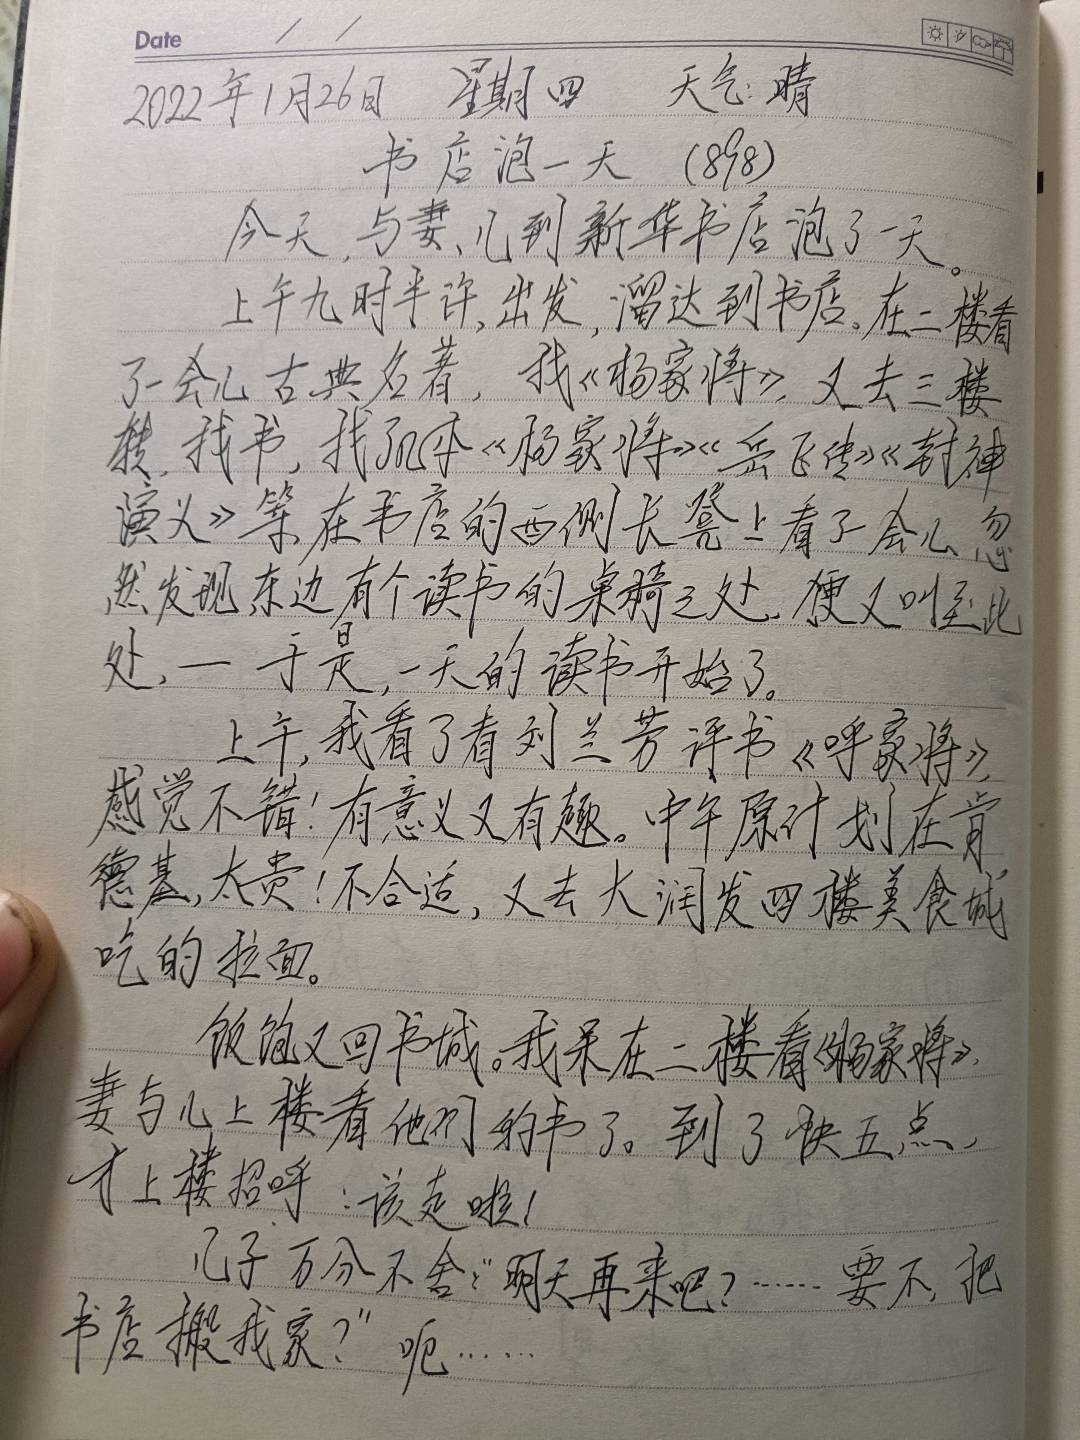 Date / /
2022年1月26日 星期四 天气:晴
书店泡一天 (898)
今天,与妻、儿到新华书店泡了一天。
上午九时半许,出发,溜达到书店。在二楼看
了一会儿古典名著,找《杨家将》,又去三楼
转,找书,找了几本《杨家将》《岳飞传》《封神
演义》等,在书店的西侧长凳上看了一会儿,忽
然发现东边有个读书的桌椅之处,便又叫至此
处,—于是,一天的读书开始了。
上午,我看了看刘兰芳评书《呼家将》,
感觉不错!有意义又有趣。中午原计划在肯
德基,太贵!不合适,又去大润发四楼美食城
吃的拉面。
饭饱又回书城。我呆在二楼看《杨家将》,
妻与儿上楼看他们的书了。到了快五点,
才上楼招呼:该走啦!
儿子万分不舍:“明天再来吧?……要不,把
书店搬我家?”呃……